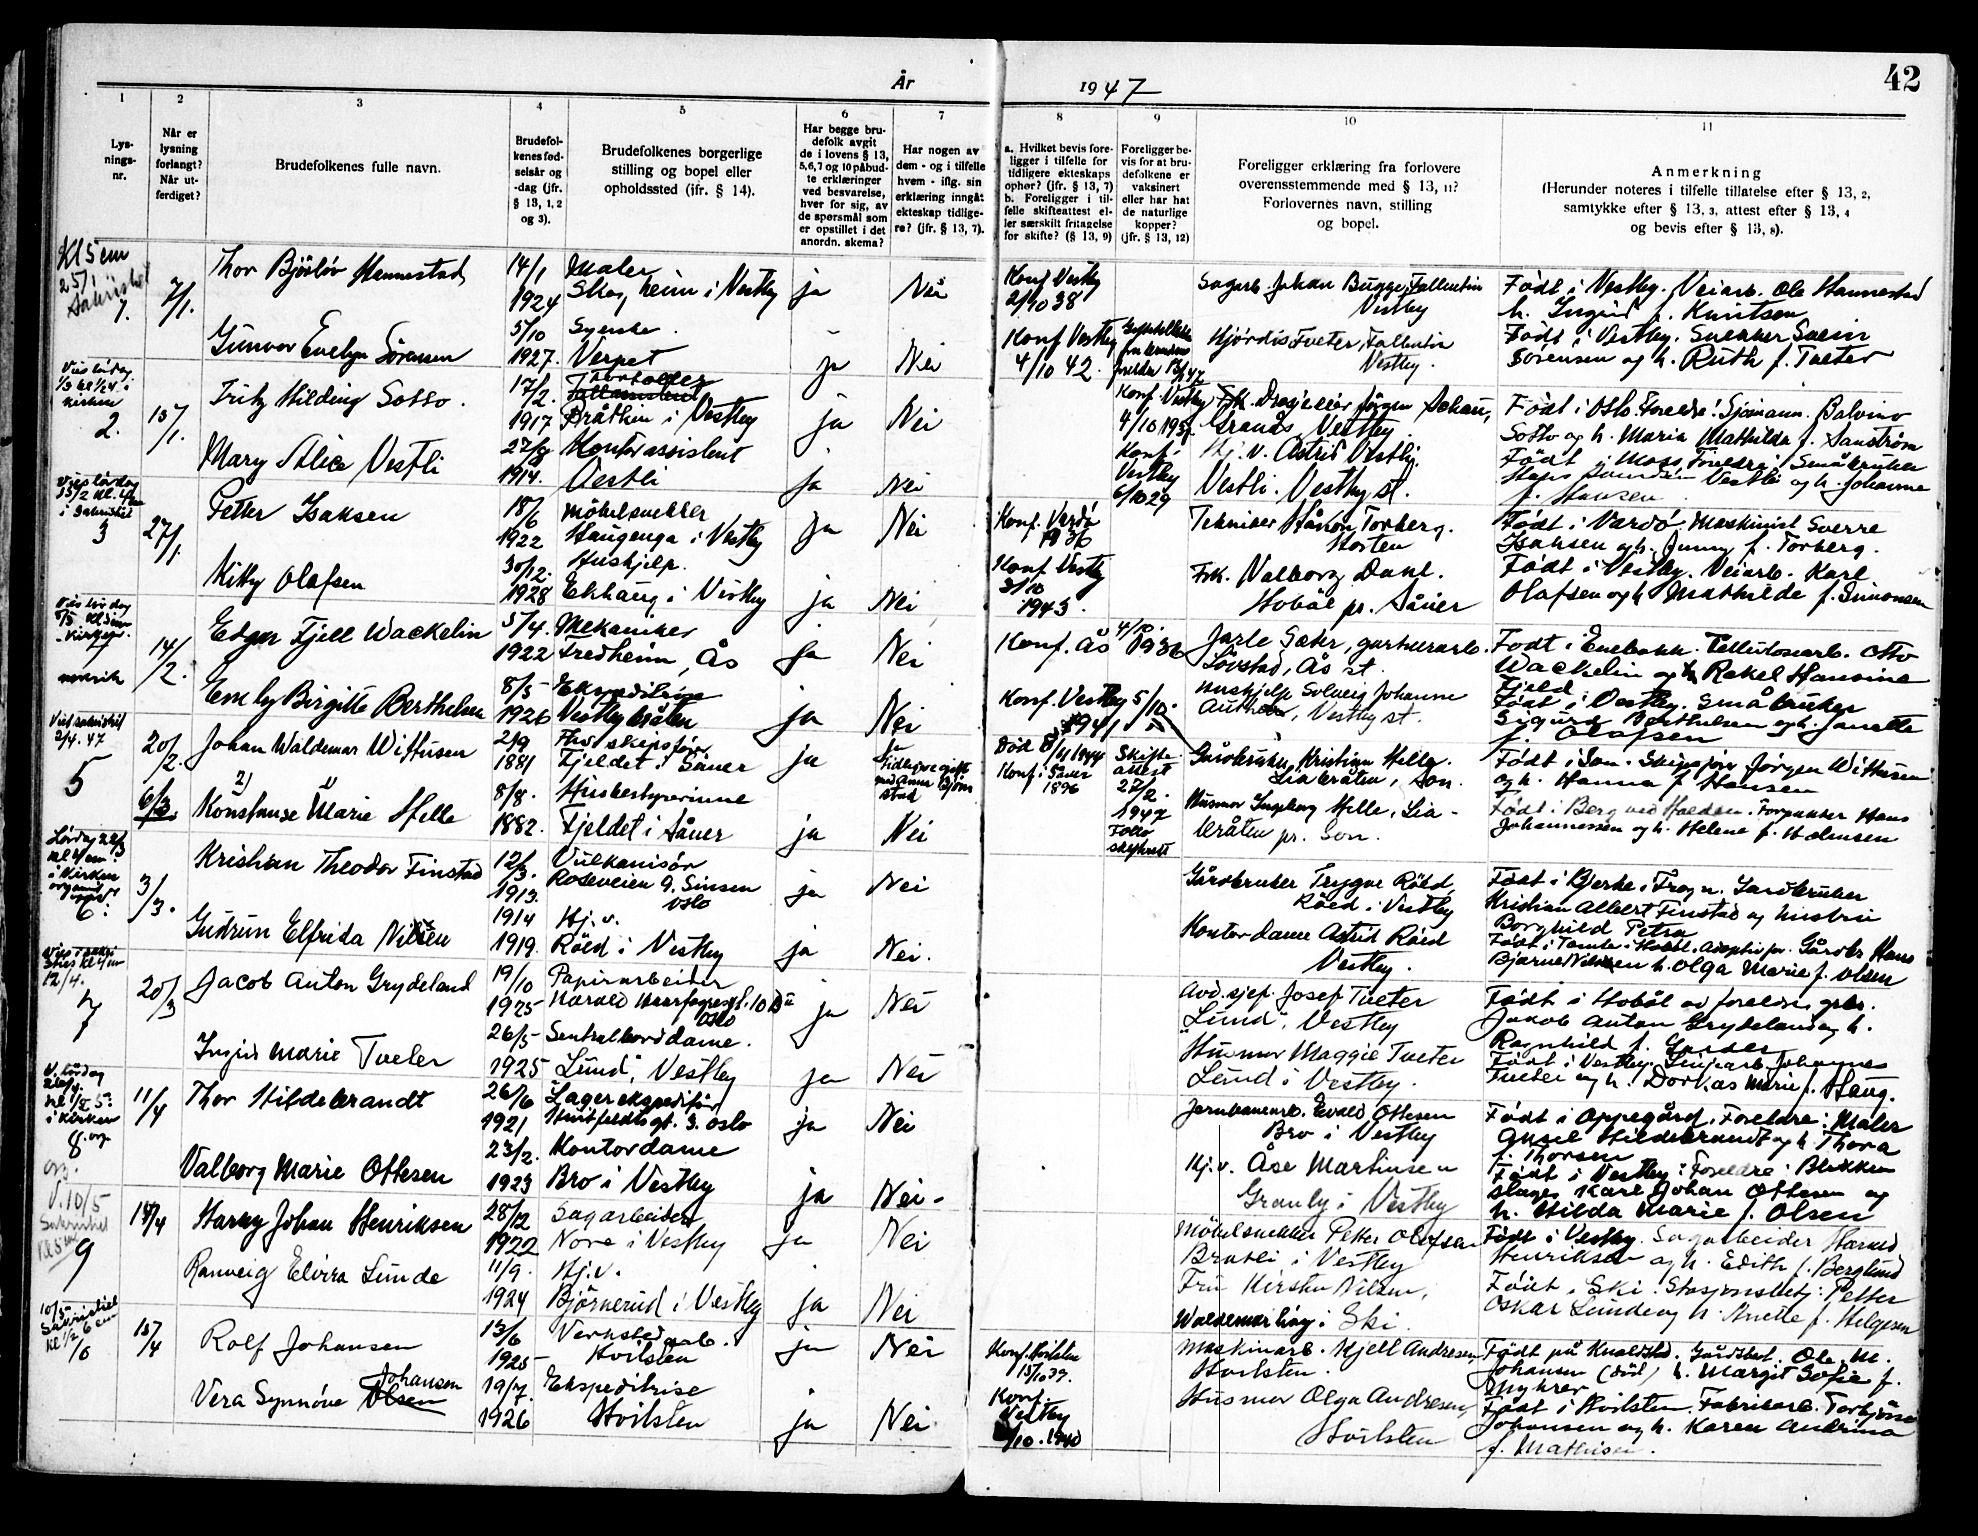 År 1947
42
1
2
3
4
5
6
7
8
9
10
11
Lys-
nings-
nr.
Når er
lysning
forlangt?
Når ut-
ferdiget?
Brudefolkenes fulle navn.
Brudefol-
kenes fød-
selsår og
-dag (jfr.
§ 13, 1, 2
og 3).
Brudefolkenes borgerlige
stilling og bopel eller
opholdssted (ifr. § 14).
Har begge bru-
defolk avgit
de i lovens § 13,
5,6,7 og 10 påbud-
te erklæringer
ved besvarelse,
hver for sig, av
de spørsmål som
er opstillet i det
anordn. skema?
Har nogen av
dem - og i tilfelle
hvem - iflg. sin
erklæring inngåt
ekteskap tidlige-
re? (jfr. § 13, 7).
a. Hvilket bevis fore-
ligger i tilfelle for
tidligere ekteskaps
ophør? (jfr. § 13, 7)
b. Foreligger i til-
felle skifteattest el-
ler særskilt fritagelse
for skifte? (§ 13, 9)
Foreligger be-
vis for at bru-
defolkene er
vaksinert
eller har hat
de naturlige
kopper?
(jfr. § 13, 12)
Foreligger erklæring fra forlovere
overensstemmende med § 13, 11?
Forlovernes navn, stilling
og bopel.
Anmerkning
(Herunder noteres i tilfelle tillatelse efter § 13, 2,
samtykke efter § 13, 3, attest efter § 13, 4
og bevis efter § 13, 8).
Kl 5 em
25/1
Sakristiet
1.
7/1.
Thor Bjørløv Hannestad
14/1
1924
Maler
Skogheim i Vestby
ja
Nei
Konf. Vestby
2/10 38
Sagarb. Johan Bugge, Fallentin
Vestby
Født i Vestby. Veiarb. Ole Hannestad
h. Ingrid f. Knutsen
Gunvor Evelyn Sørensen
5/10
1927.
Syerske.
Verpet
ja
Nei
Konf Vestby
4/10 42.
Hjørdis Tveter, Fallentin
Vestby.
Født i Vestby. Snekker Svein
Sørensen og h. Ruth f. Tveter
Vies lørdag
1/3 kl 1/2 4 i
kirken
2.
15/1.
Fritz Hilding Sotto.
17/2.
1917
Bråthen i Vestby
ja
Nei
Konf. Vestby
4/10 193
Drosjeeier Jørgen Schau,
Granås, Vestby
Født i Oslo. Foreldre: Sjømann Balvino
Sotto og h. Maria Mathilda f. Sanstrøm
Mary Alice Vestli
27/8
1914.
Kontorassistent
Vestli
ja
Nei
Konf. i
Vestby
6/10 29
Hj. v. Astrid Vestli.
Vestli. Vestby st.
Født i Moss, Foreldre: Småbruker
Vestli og h. Johanne
f. Hansen
Vies lørdag
15/2 kl. 4 em
i Sakristiet
3
27/1.
Petter Isaksen
18/6
1922
Møbelsnekker
Haugenga i Vestby
ja
Nei
Konf. Vardø
1936
Tekniker Håkon Torberg.
Horten
Født i Vardø, Maskinist Sverre
Isaksen og h. Jenny f. Torberg.
Kitty Olafsen
30/12.
1928
Hushjelp.
Ekhaug i Vestby
ja
Nei
Konf. Vestby
3/10
1943.
Frk. Valborg Dahl.
Hobøl pr. Såner
Født i Vestby. Veiarb. Karl
Olafsen og h Mathilde f. Simonsen
14/2.
Edgar Fjell Wackelin
5/4.
1922
Mekaniker
Fredheim, Ås
ja
Nei
Konf. Ås
4/10.
1936
Jarle Sæter, gartnerarb.
Løvstad, Ås st.
Født i Enebakk. Cellulosearb. Otto
Wackelin og h Rakel Hansine
Fjeld
Emly Birgitte Berthelsen
8/5
1926
Ekspeditrise
Vestbybråten
ja
Nei
Konf. Vestby 5/10.
1941
Hushjelp Solveig Johanne
Vestby st.
Født i Vestby. Småbruker
Sigurd Berthelsen og h. Janette
f. Olafsen
Vies sakristiet
2/4. 47
5
20/2.
6/3.
Johan Waldemar Withusen
2/9
1881
Fhv. skipsfør.
Fjeldet i Såner
ja
Ja
Tidligere gift
med Anna Bjørn-
stad
Død 8/11 1944
Konf. i Såner
1896
Skifte-
attest
27/2.
1947
Follo
skifterett
Gårdbruker Kristian Helle.
Liabråten, Son.
Født i Son. Skipsfører Jørgen Withusen
og h. Hanna f. Hansen
2) 1)
Konstanse Marie Helle
8/8.
1882.
Husbestyrerinne
Fjeldet i Såner
ja
Nei
Husmor Ingeborg Helle, Lia-
bråten pr. Son.
Født i Berg ved Halden. Forpakter Hans
Johannessen og h. Helene f. Halensen
Lørdag 22/3
kl 4 em
i Kirken
6.
3/3.
Kristian Theodor Finstad
12/3.
1913.
Vulkanisør
Roseveien 9, Sinsen
Oslo
ja
Nei
Gårdbruker Trygve Røed,
Røed i Vestby
Født i Bjerke i Frogn. Gårdbruker
Kristian Albert Finstad og hustru
Borghild Petra
Gudrun Elfrida Nilsen
1914
1919.
Hj. v.
Røed i Vestby
ja
Nei.
Kontordame Astrid Røed
Vestby.
Født i Tomter i Hobøl. Adoptivfor. Gårdbr Hans
Bjarne Nilsen h. Olga Marie f. Olsen
12/4.
7
20/3
Jacob Anton Grydeland
19/10
1925
Papirarbeider
Harald Haarfagresgt. 10 D II
Oslo
ja
Nei
Avd. sjef. Josef Tveter
"Lund", Vestby
Født i Hobøl av foreldre gbr.
Jakob Anton Grydeland og h.
Ragnhild f. Garder
Ingrid Marie Tveter
26/5
1925
Sentralborddame.
"Lund", Vestby
ja
Nei
Husmor Maggie Tveter
Lund i Vestby.
Født i Vestby. Linjearb. Johannes
Tveter og h. Dorkas Marie f. Haug.
V. lørdag
26/4.
kl 1/2 5
i kirken
8. org.
11/4
Thor Hildebrandt
26/6
1921
Lagerekspeditør
Huitfeldtsgt. 3. Oslo
ja
Nei
Jernbanearb. Evald Ottesen
Bro i Vestby
Født i Oppegård, Foreldre: Maler
Aksel Hildebrandt og h Thora
f. Thorsen
Valborg Marie Ottesen
23/2.
1923
Kontordame
Bro i Vestby
ja
Nei -
Hj. v. Åse Martinsen
Granly i Vestby
Født i Vestby: Foreldre: Blikken
slager Karl Johan Ottesen og
h. Hilda Marie f. Olsen
V. 10/5
Sakristiet
Kl 5 em
9
15/4
Harry Johan Henriksen
28/12
1922
Sagarbeider
Nore i Vestby
ja
Nei
Møbelsnekker Petter Olafsen
Bratli i Vestby
Født i Vestby. Sagarbeider Harald
Henriksen og h. Edith f. Berglund
Ranveig Elvira Lunde
11/9.
1924
Hj. v.
Bjørnerud i Vestby
ja
Nei
Fru Kirsten Nilsen,
Waldemarhøy i Ski.
Født i Ski. Stasjonsbetj. Petter
Oskar Lunde og h. Anette f. Helgesen
10/5
Sakristiet
kl 1/2 6 em
10
15/4
Rolf Johansen
13/6
1925
Verkstedarb.
Hvitsten
ja
Nei
Konf. Hvitsten
15/10 39.
Maskinarb. Kjell Andresen,
Hvitsten.
Født på Knaldstad. Gårdsbest. Ole M.
Johansen (død) h. Margit Sofie f.
Nyhver
Johansen
Vera Synnøve Olsen
19/7.
1926
Ekspeditrise
Hvitsten
ja
Nei
Konf.
Vestby
/10. 1940
Husmor Olga Andresen,
Hvitsten
Født i Hvitsten. Fabrikarb. Torbjørn
Johansen og h. Karen Andrina
f. Mathisen.